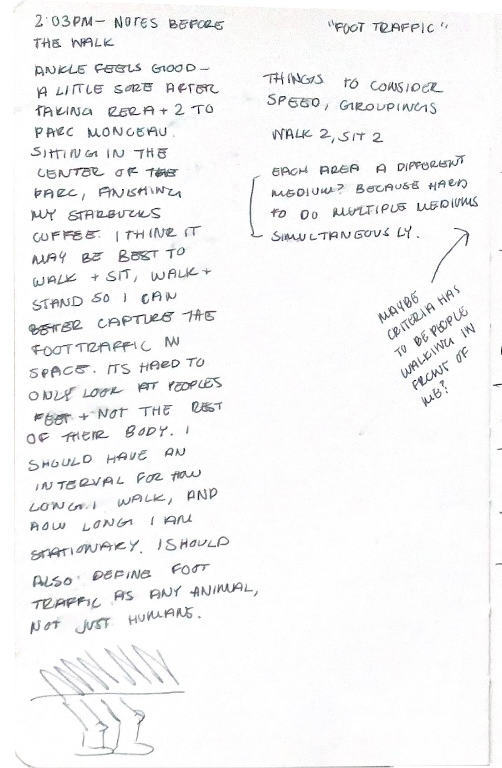 2:03PM – NOTES BEFORE
THE WALK
ANKLE FEELS GOOD –
A LITTLE SORE AFTER
TAKING RERA + 2 TO
PARC MONCEAU.
SITTING IN THE
CENTER OF THE
PARC, FINISHING
MY STARBUCKS
COFFEE. I THINK IT
MAY BE BEST TO
WALK + SIT, WALK +
STAND SO I CAN
BETTER CAPTURE THE
FOOT TRAFFIC IN
SPACE. ITS HARD TO
ONLY LOOK AT PEOPLES
FEET + NOT THE REST
OF THEIR BODY. I
SHOULD HAVE AN
INTERVAL FOR HOW
LONG I WALK, AND
HOW LONG I AM
STATIONARY. I SHOULD
ALSO DEFINE FOOT
TRAFFIC AS ANY ANIMAL,
NOT JUST HUMANS.
"FOOT TRAFFIC"
THINGS TO CONSIDER
SPEED, GROUPINGS
WALK 2, SIT 2
EACH AREA A DIFFERENT
MEDIUM? BECAUSE HARD
TO DO MULTIPLE MEDIUMS
SIMULTANEOUSLY.
MAYBE
CRITERIA HAS
TO BE PEOPLE
WALKING IN
FRONT OF
ME?